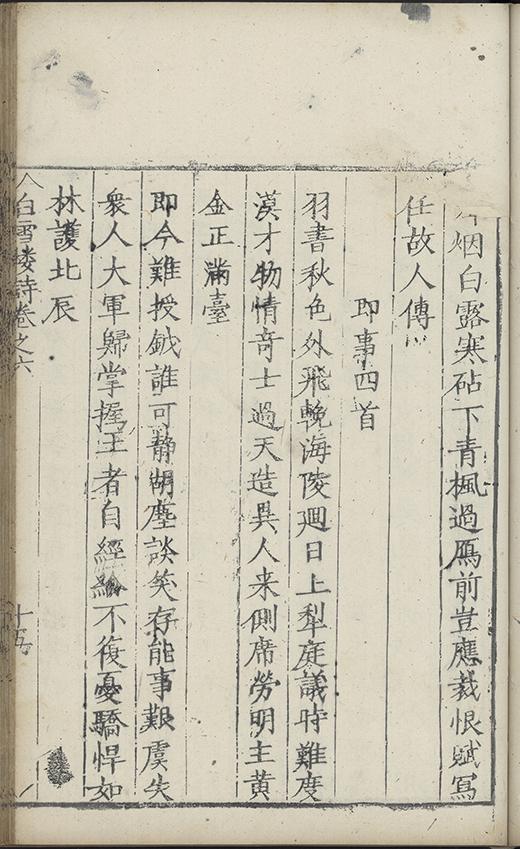 烟白露寒砧下青楓過鴈前豈應裁恨賦寫
任故人傳
即事四首
羽書秋色外飛輓海陵迴日上犁庭議時難度
漠才物情奇士過天造異人来側席勞明主黄
金正滿臺
即今難授鉞誰可靜湖塵談笑存能事艱虞失
衆人大軍歸掌握王者自經綸不復憂驕悍如
林護北辰
白雪樓詩卷之六
十五